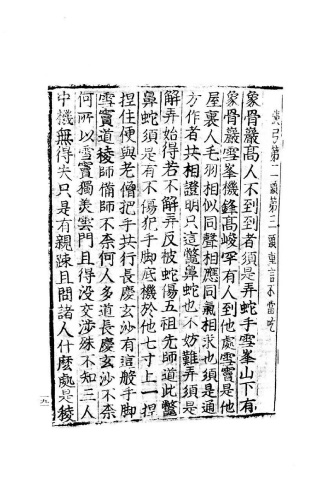 弓第二第三頭重言不當
象骨巖高人不到到者須是弄蛇手雪峯山下有
象骨巖雪峯機鋒高峻罕有人到他處雪竇是他
屋裏人毛羽相似同聲相應同氣相求也須是通
方作者共相證明只這鱉鼻蛇也不妨難弄須是
解弄始得若不解弄反被蛇傷五祖先師道此鱉
鼻蛇須是有不傷犯手脚底機於他七寸上一捏
捏住便與老僧把手共行長慶玄沙有這般手脚
雪竇道稜師備師不奈何人多道長慶玄沙不奈
何所以雪竇獨美雲門且得没交涉殊不知三人
中機無得失只是有親疎且問諸人什麽處是稜